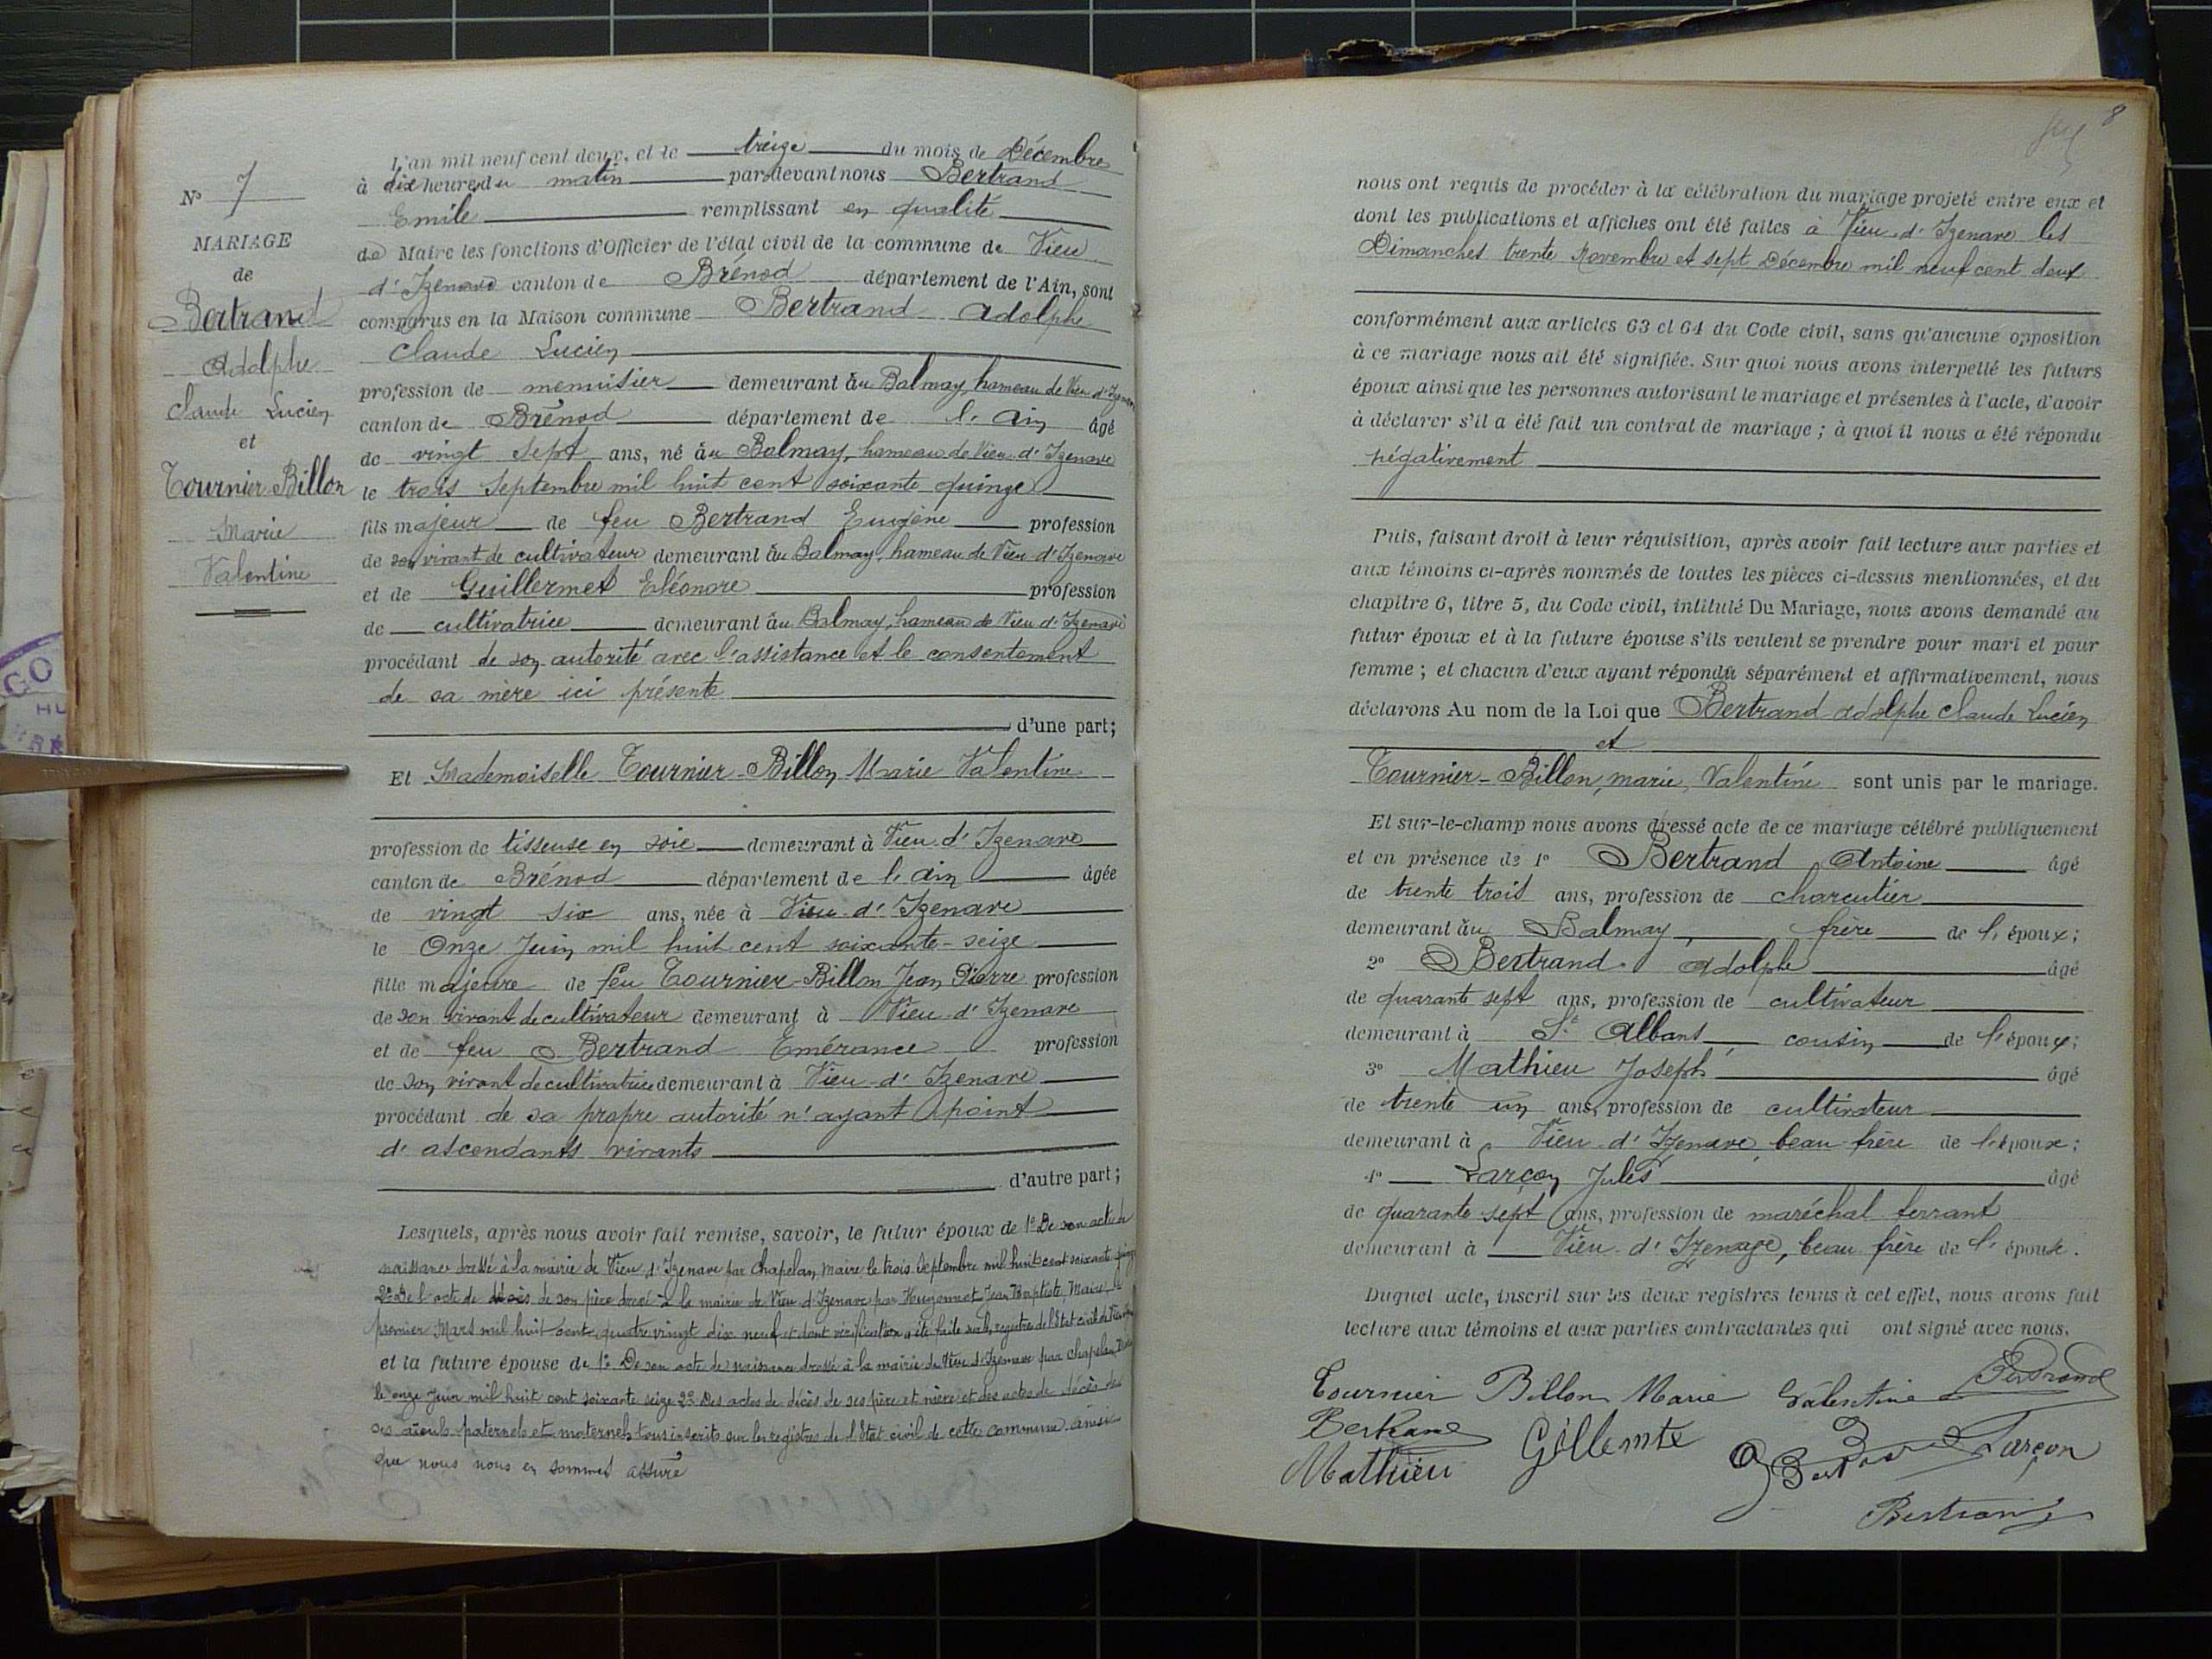 N° 7
MARIAGE
de
Bertrand
Adolphe
Claude Lucien
et
Tournier-Billon
Marie
Valentine
L'an mil neuf cent deux, et le treize du mois de Décembre
à dix heures du matin par-devant nous Bertrand
Emile remplissant en qualité
de Maire les fonctions d'Officier de l'état civil de la commune de Vieu
d'Izenave canton de Brénod département de l'Ain, sont
comparus en la Maison commune Bertrand Adolphe
Claude Lucien
profession de menuisier demeurant au Balmay, hameau de Vieu d'Izenave
canton de Brénod département de l'Ain âgé
de vingt sept ans, né au Balmay, hameau de Vieu d'Izenave
le trois Septembre mil huit cent soixante quinze
fils majeur de feu Bertrand Eugène profession
de son vivant de cultivateur demeurant au Balmay, hameau de Vieu-d'Izenave
et de Guillermet Eléonore profession
de cultivatrice demeurant au Balmay, hameau de Vieu d'Izenave
procédant de son autorité avec l'assistance et le consentement
de sa mère ici présente
d'une part;
Et Mademoiselle Tournier-Billon Marie Valentine
profession de tisseuse en soie demeurant à Vieu-d'Izenave
canton de Brénod département de l'Ain âgée
de vingt six ans, née à Vieu-d'Izenave
le Onze Juin mil huit cent soixante-seize
fille majeure de feu Tournier-Billon Jean Pierre profession
de son vivant de cultivateur demeurant à Vieu-d'Izenave
et de feu Bertrand Emérance profession
de son vivant de cultivatrice demeurant à Vieu-d'Izenave
procédant de sa propre autorité n'ayant point
d'ascendants vivants
d'autre part;
Lesquels, après nous avoir fait remise, savoir, le futur époux de 1° De son acte de
naissance dressé à la mairie de Vieu d'Izenave par Chapelan, Maire le trois Septembre mil huit cent soixante quinze
2° De l'acte de décès de son père dressé à la mairie de Vieu d'Izenave par Hugonnet Jean Baptiste, Maire le
premier Mars mil huit cent quatre vingt dix neuf et dont vérification a été faite sur le registre de l'Etat civil de
et la future épouse de 1° De son acte de naissance dressé à la mairie de Vieu d'Izenave par Chapelan,
le onze Juin mil huit cent soixante seize 2° Des actes de décès de ses père et mère et des actes de décès de
ses aïeuls paternels et maternels tous inscrits sur les registres de l'Etat civil de cette commune ainsi
que nous nous en sommes assuré
8
nous ont requis de procéder à la célébration du mariage projeté entre eux et
dont les publications et affiches ont été faites à Vieu-d'Izenave les
Dimanches trente Novembre et sept Décembre mil neuf cent deux
conformément aux articles 63 et 64 du Code civil, sans qu'aucune opposition
à ce mariage nous ait été signifiée. Sur quoi nous avons interpellé les futurs
époux ainsi que les personnes autorisant le mariage et présentes à l'acte, d'avoir
à déclarer s'il a été fait un contrat de mariage; à quoi il nous a été répondu
négativement
Puis, faisant droit à leur réquisition, après avoir fait lecture aux parties et
aux témoins ci-après nommés de toutes les pièces ci-dessus mentionnées, et du
chapitre 6, titre 5, du Code civil, intitulé Du Mariage, nous avons demandé au
futur époux et à la future épouse s'ils veulent se prendre pour mari et pour
femme; et chacun d'eux ayant répondu séparément et affirmativement, nous
déclarons Au nom de la Loi que Bertrand Adolphe Claude Lucien
et
Tournier-Billon, marie, Valentine sont unis par le mariage.
Et sur-le-champ nous avons dressé acte de ce mariage célébré publiquement
et en présence de 1° Bertrand Antoine âgé
de trente trois ans, profession de charcutier
demeurant au Balmay, frère de l'époux;
2° Bertrand Adolphe âgé
de quarante sept ans, profession de cultivateur
demeurant à St Albans cousin de l'époux;
3° Mathieu Joseph âgé
de trente un ans, profession de cultivateur
demeurant à Vieu-d'Izenave, beau-frère de l'épouse;
4° Larçon Jules âgé
de quarante sept ans, profession de maréchal ferrant
demeurant à Vieu-d'Izenave, beau frère de l'épouse.
Duquel acte, inscrit sur les deux registres tenus à cet effet, nous avons fait
lecture aux témoins et aux parties contractantes qui ont signé avec nous.
Tournier Billon Marie Valentine Bertrand
Bertrand Gillemte Larçon
Mathieu
Bertrand